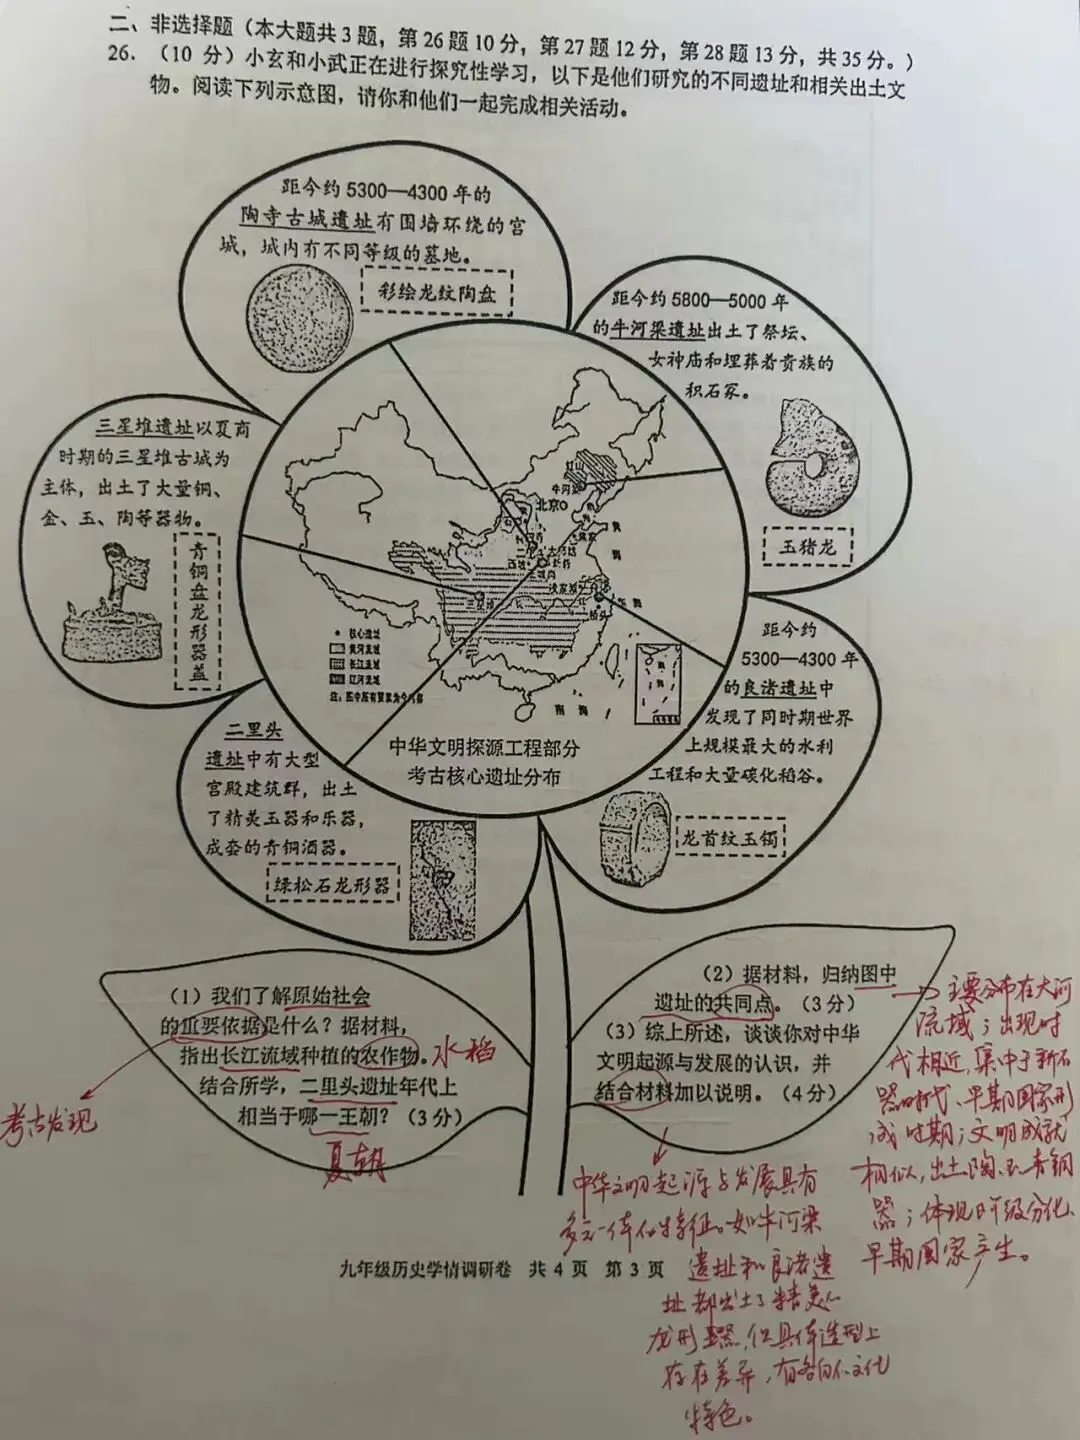 二、非选择题（本大题共3题，第26题10分，第27题12分，第28题13分，共35分。）
26．（10 分）小玄和小武正在进行探究性学习，以下是他们研究的不同遗址和相关出土文
物。阅读下列示意图，请你和他们一起完成相关活动。
距今约 5300—4300 年的
陶寺古城遗址有围墙环绕的宫
城，城内有不同等级的墓地。
彩绘龙纹陶盘
距今约 5800—5000 年
的牛河梁遗址出土了祭坛、
女神庙和埋葬着贵族的
积石冢。
玉猪龙
三星堆遗址以夏商
时期的三星堆古城为
主体，出土了大量铜、
金、玉、陶等器物。
青铜盘龙形器盖
北京
核心遗址
黄河流域
长江流域
辽河流域
南 海
中华文明探源工程部分
考古核心遗址分布
距今约
5300—4300 年
的良渚遗址中
发现了同时期世界
上规模最大的水利
工程和大量碳化稻谷。
龙首纹玉镯
二里头
遗址中有大型
宫殿建筑群，出土
了精美玉器和乐器，
成套的青铜酒器。
绿松石龙形器
（1）我们了解原始社会
的重要依据是什么？据材料，
指出长江流域种植的农作物。水稻
结合所学，二里头遗址年代上
相当于哪一王朝？（3 分）
考古发现
夏朝
（2）据材料，归纳图中
遗址的共同点。（3 分）
（3）综上所述，谈谈你对中华
文明起源与发展的认识，并
结合材料加以说明。（4 分）
主要分布在大河
流域；出现时
代相近，集中于新石
器时代、早期国家形
成时期；文明成就
相似，出土陶、玉、青铜
器；体现阶级分化、
早期国家产生。
中华文明起源与发展具有
多元一体的特征。如牛河梁
遗址和良渚遗
址都出土了精美的
龙形玉器，但具体造型上
存在差异，有各自的文化
特色。
九年级历史学情调研卷 共 4 页 第 3 页